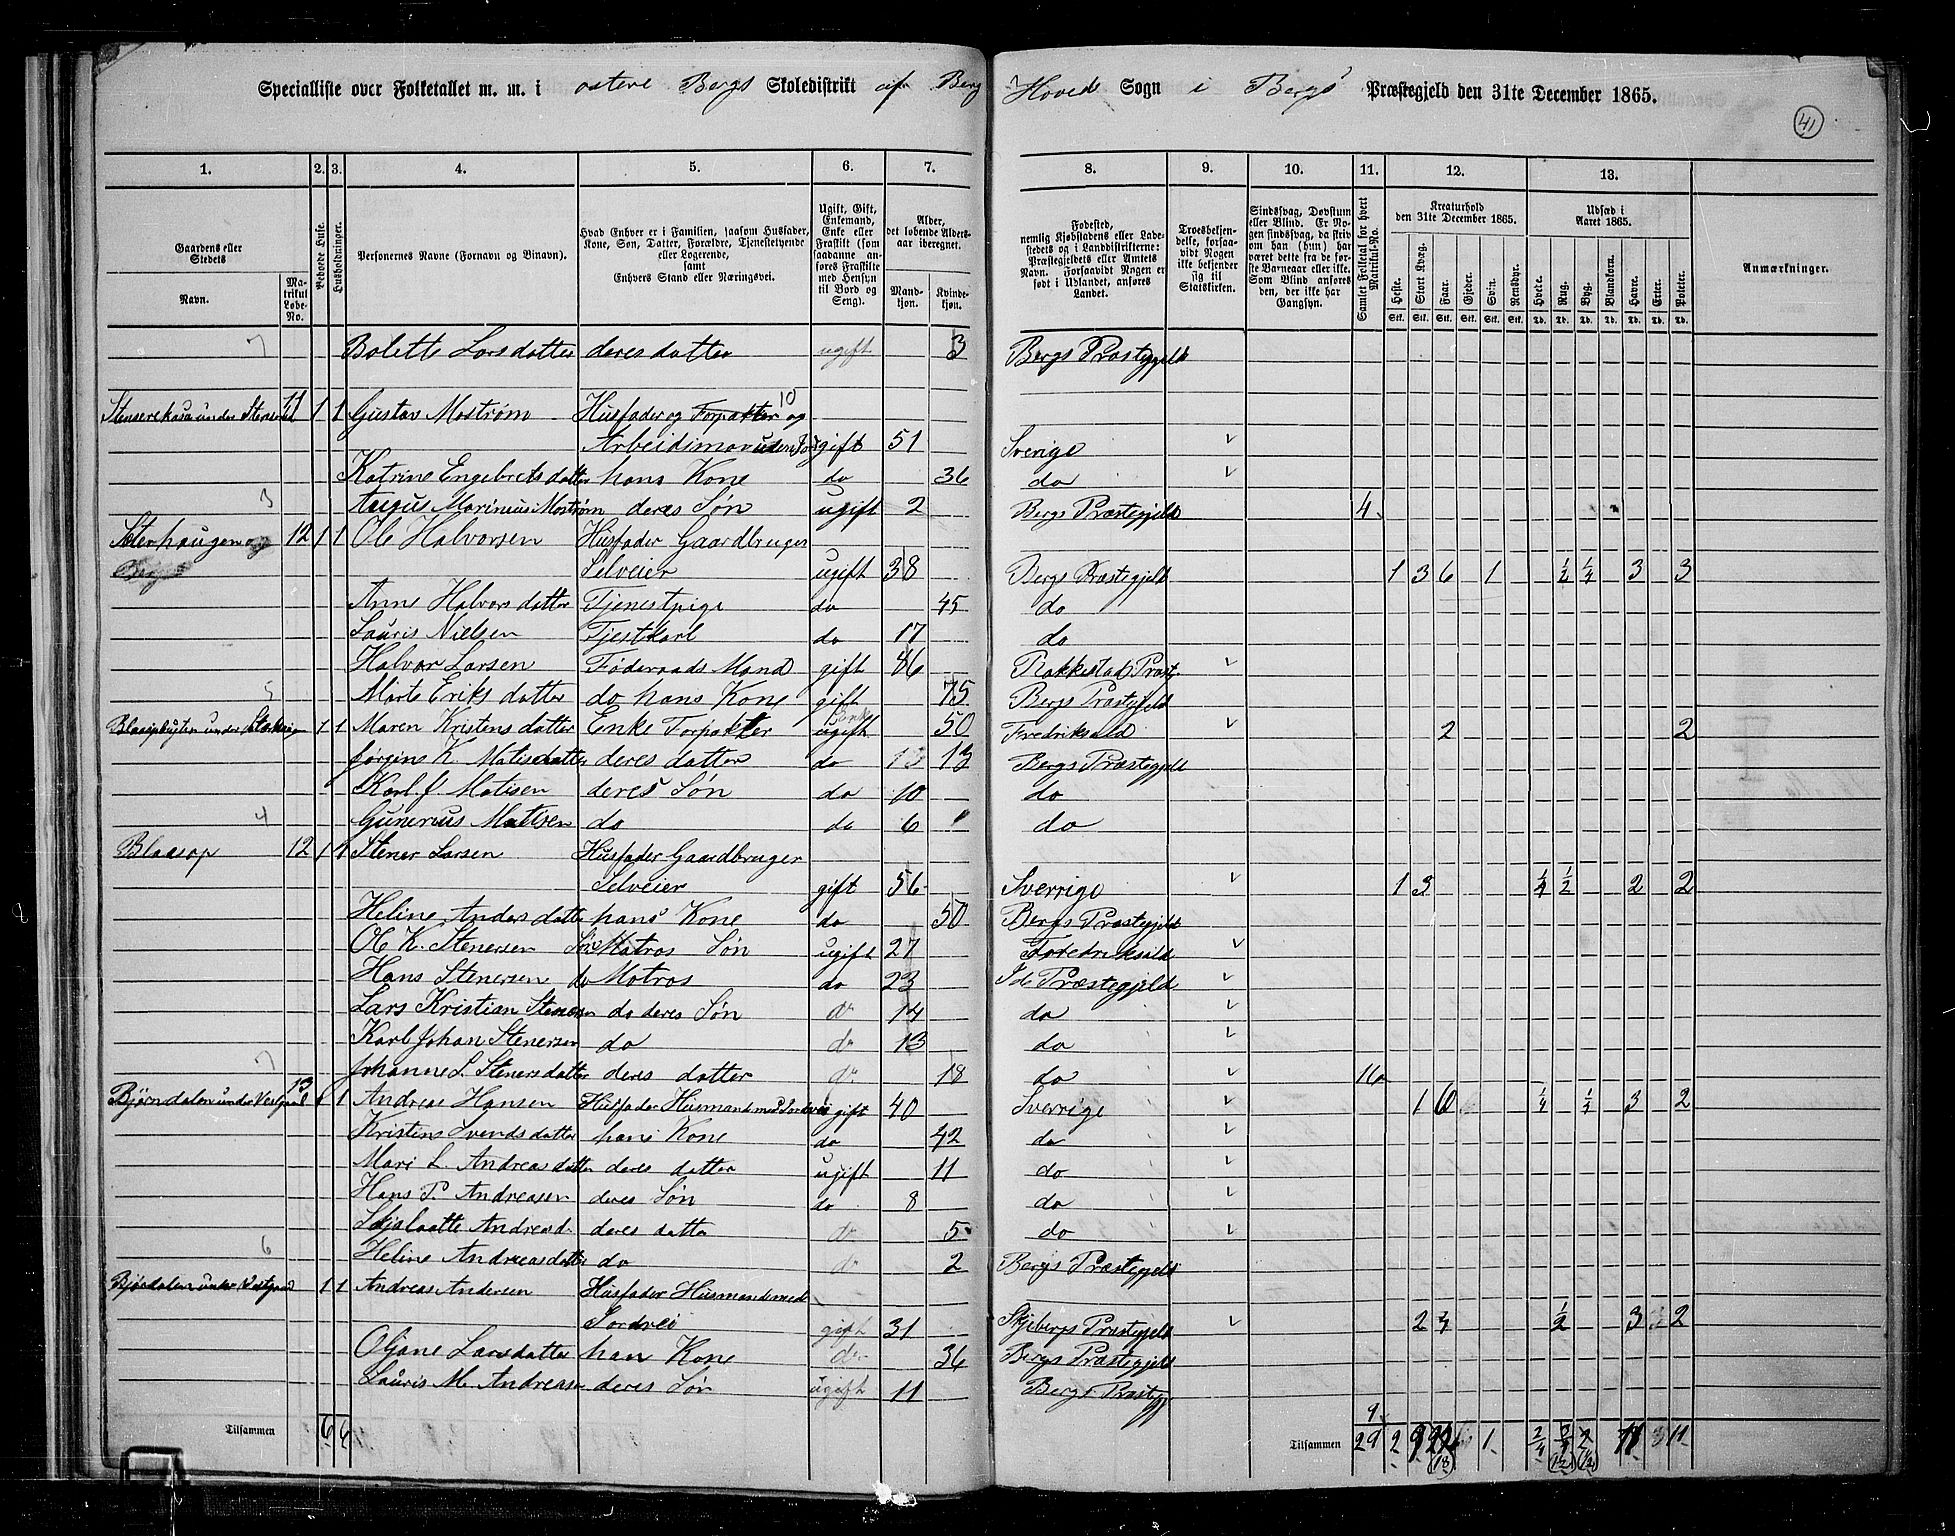 Specialliste over Folketallet m. m. i østere Bergs Skoledistrikt af Berg Hoved Sogn i Bergs Præstegjeld den 31te December 1865.
41
1. 2. 3. 4. 5. 6. 7. 8. 9. 10. 11. 12. 13.
Gaardens eller Stedets Navn. Matrikul Løbe-No. Beboede Huse. Husholdninger. Personernes Navne (Fornavn og Binavn). Hvad Enhver er i Familien, saasom Husfader, Kone, Søn, Datter, Forældre, Tjenestetyende eller Logerende, samt Enhvers Stand eller Næringsvei. Ugift, Gift, Enkemand, Enke eller Fraskilt (som saadanne anføres Fraskilte med Hensyn til Bord og Seng). Alder, det løbende Aldersaar iberegnet. Mandkjøn. Kvindekjøn. Fødested, nemlig Kjøbstadens eller Ladestedets og i Landdistrikterne: Præstegjeldets eller Amtets Navn. Forsaavidt Nogen er født i Udlandet, anføres Landet. Troesbekjendelse, forsaavidt Nogen ikke bekjender sig til Statskirken. Sindssvag, Døvstum eller Blind. Er Nogen sindssvag, da skriv om han (hun) har været dette fra de første Barneaar eller ikke. Som Blind anføres den, der ikke har Gangsyn. Samlet Folketal for hvert Matrikul-No. Kreaturhold den 31te December 1865. Heste. Stort Kvæg. Faar. Gjeder. Svin. Rensdyr. Udsæd i Aaret 1865. Hvete. Rug. Byg. Blandkorn. Havre. Erter. Poteter. Anmærkninger.
Stk. Stk. Stk. Stk. Stk. Stk. Td. Td. Td. Td. Td. Td. Td.
7 Bolette Larsdatter deres datter ugift 3 Bergs Præstegjeld
11 1 1 Gustav Mostrøm Husfader og Forpakter og 10
Arbeidsmand uden Jord gift 51 Sverige
Katrine Engebretsdatter hans Kone do 36 do
3 August Marinius Mostrøm deres Søn ugift 2 Bergs Præstegjeld 4
12 1 1 Ole Halvorsen Husfader Gaardbruger
Selveier ugift 38 Bergs Præstegjeld 1 3 6 1 1/2 1/4 3 3
Anne Halvorsdatter Tjenestpige do 45 do
Lauris Nielsen Tjestkarl do 17 do
Halvor Larsen Føderaads Mand gift 86 Rakkestad Præstg
5 Marte Eriksdatter do hans Kone gift 75 Bergs Præstegjeld
1 1 Maren Kristensdatter Enke Forpakter ugift Enke 50 Fredrikshald 2 2
Jørgine K. Matisdatter deres datter do 13 13 Bergs Præstegjeld
Karl J. Matisen deres Søn do 10 do
4 Gunerius Matisen do do 6 do
Blaasop 12 1 1 Stener Larsen Husfader Gaardbruger
Selveier gift 56 Sverrige 1 3 1/4 1/2 2 2
Heline Andersdatter hans Kone do 50 Bergs Præstegjeld
Ole K. Stenersen Søn Matros Søn ugift 27 Fredrikshald
Hans Stenersen do Matros do 23 Ide Præstegjeld
Lars Kristian Stenersen do deres Søn do 14 do
Karl Johan Stenersen do do 13 do
7 Johanne L. Stenersdatter deres datter do 18 do 16
Bjørndalen under Vestgaard 13 1 1 Andreas Hansen Husfader Husmand med Jordvei gift 40 Sverrige 1 6 1/4 1/4 3 2
Kristine Svendsdatter hans Kone do 42 do
Mari L. Andreasdatter deres datter ugift 11 do
Hans P. Andreasen deres Søn do 8 do
Andreasd. deres datter do 5 do
6 Heline Andreasdatter do do 2 Bergs Præstegjeld
Bjørndalen under Vestgaard 1 1 Andreas Andersen Husfader Husmand med
Jordvei gift 31 Skjebergs Præstegjeld 2 4 1/2 3 2
Oljane Larsdatter han Kone do 36 Bergs Præstegjeld
Lauris M. Andreasen deres Søn ugift 11 Bergs Præstegj
9
Tilsammen 6 6 Tilsammen 29 2 9 1 2/4 11 3 11